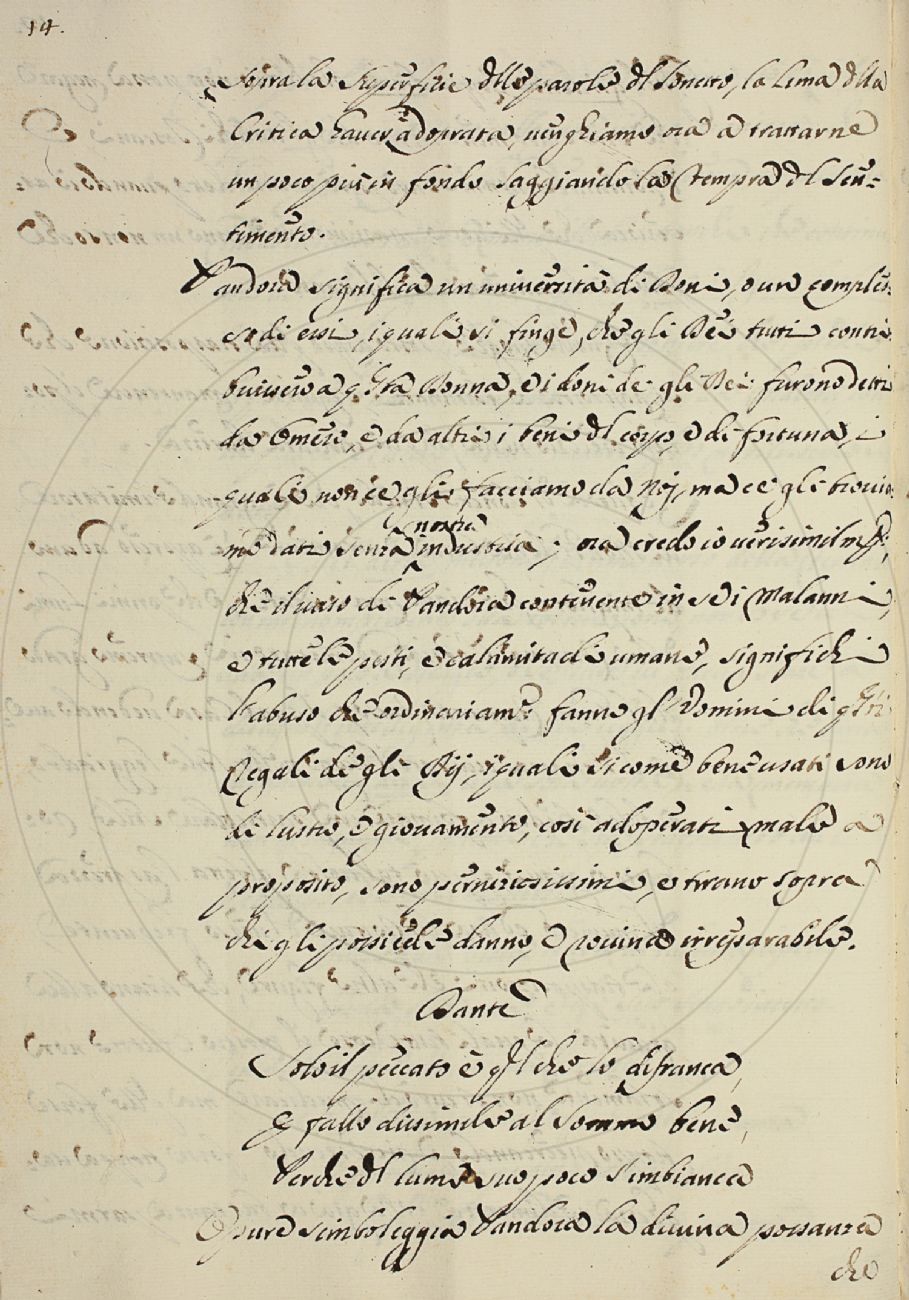 14.
sopra la superficie dlle parole dl Sonetto, la Lima dlla
Critica haver adoprata, venghiamo ora a trattarne
un poco più in fondo saggiando la Tempra dl Sen=
timento.
Pandora significa un università di Doni, o ure comples=
so di essi, i quali si finge, che gli Dei tutti contri=
buissero a qsta Donna, e i doni de gli Dei furono detti
da Omero, e da altri i beni dl corpo, e di fortuna, i
quali non ce gli facciamo da Noj, ma ce gli trovia=
mo dati senza nostra industria; ora credo io verisimilmte,
che il vaso di Pandora contenente in se i Malanni,
e tutte le pesti, e calamitadi umane, significhi
l'abuso che ordinariamte fanno gl' Uomini di qsti
Regali de gli Dij, i quali si come bene usati sono
di lustro, e giovamento, così adoperati male a
proposito, sono perniziosissimi, e tirano sopra
chi gli possiede danno, e rovina irreparabile.
Dante
Solo il peccato è ql che lo disfranca,
E fallo dissimile al Sommo bene,
Perche dl lume suo poco s'imbianca
O pure simboleggia Pandora la divina possanza
che